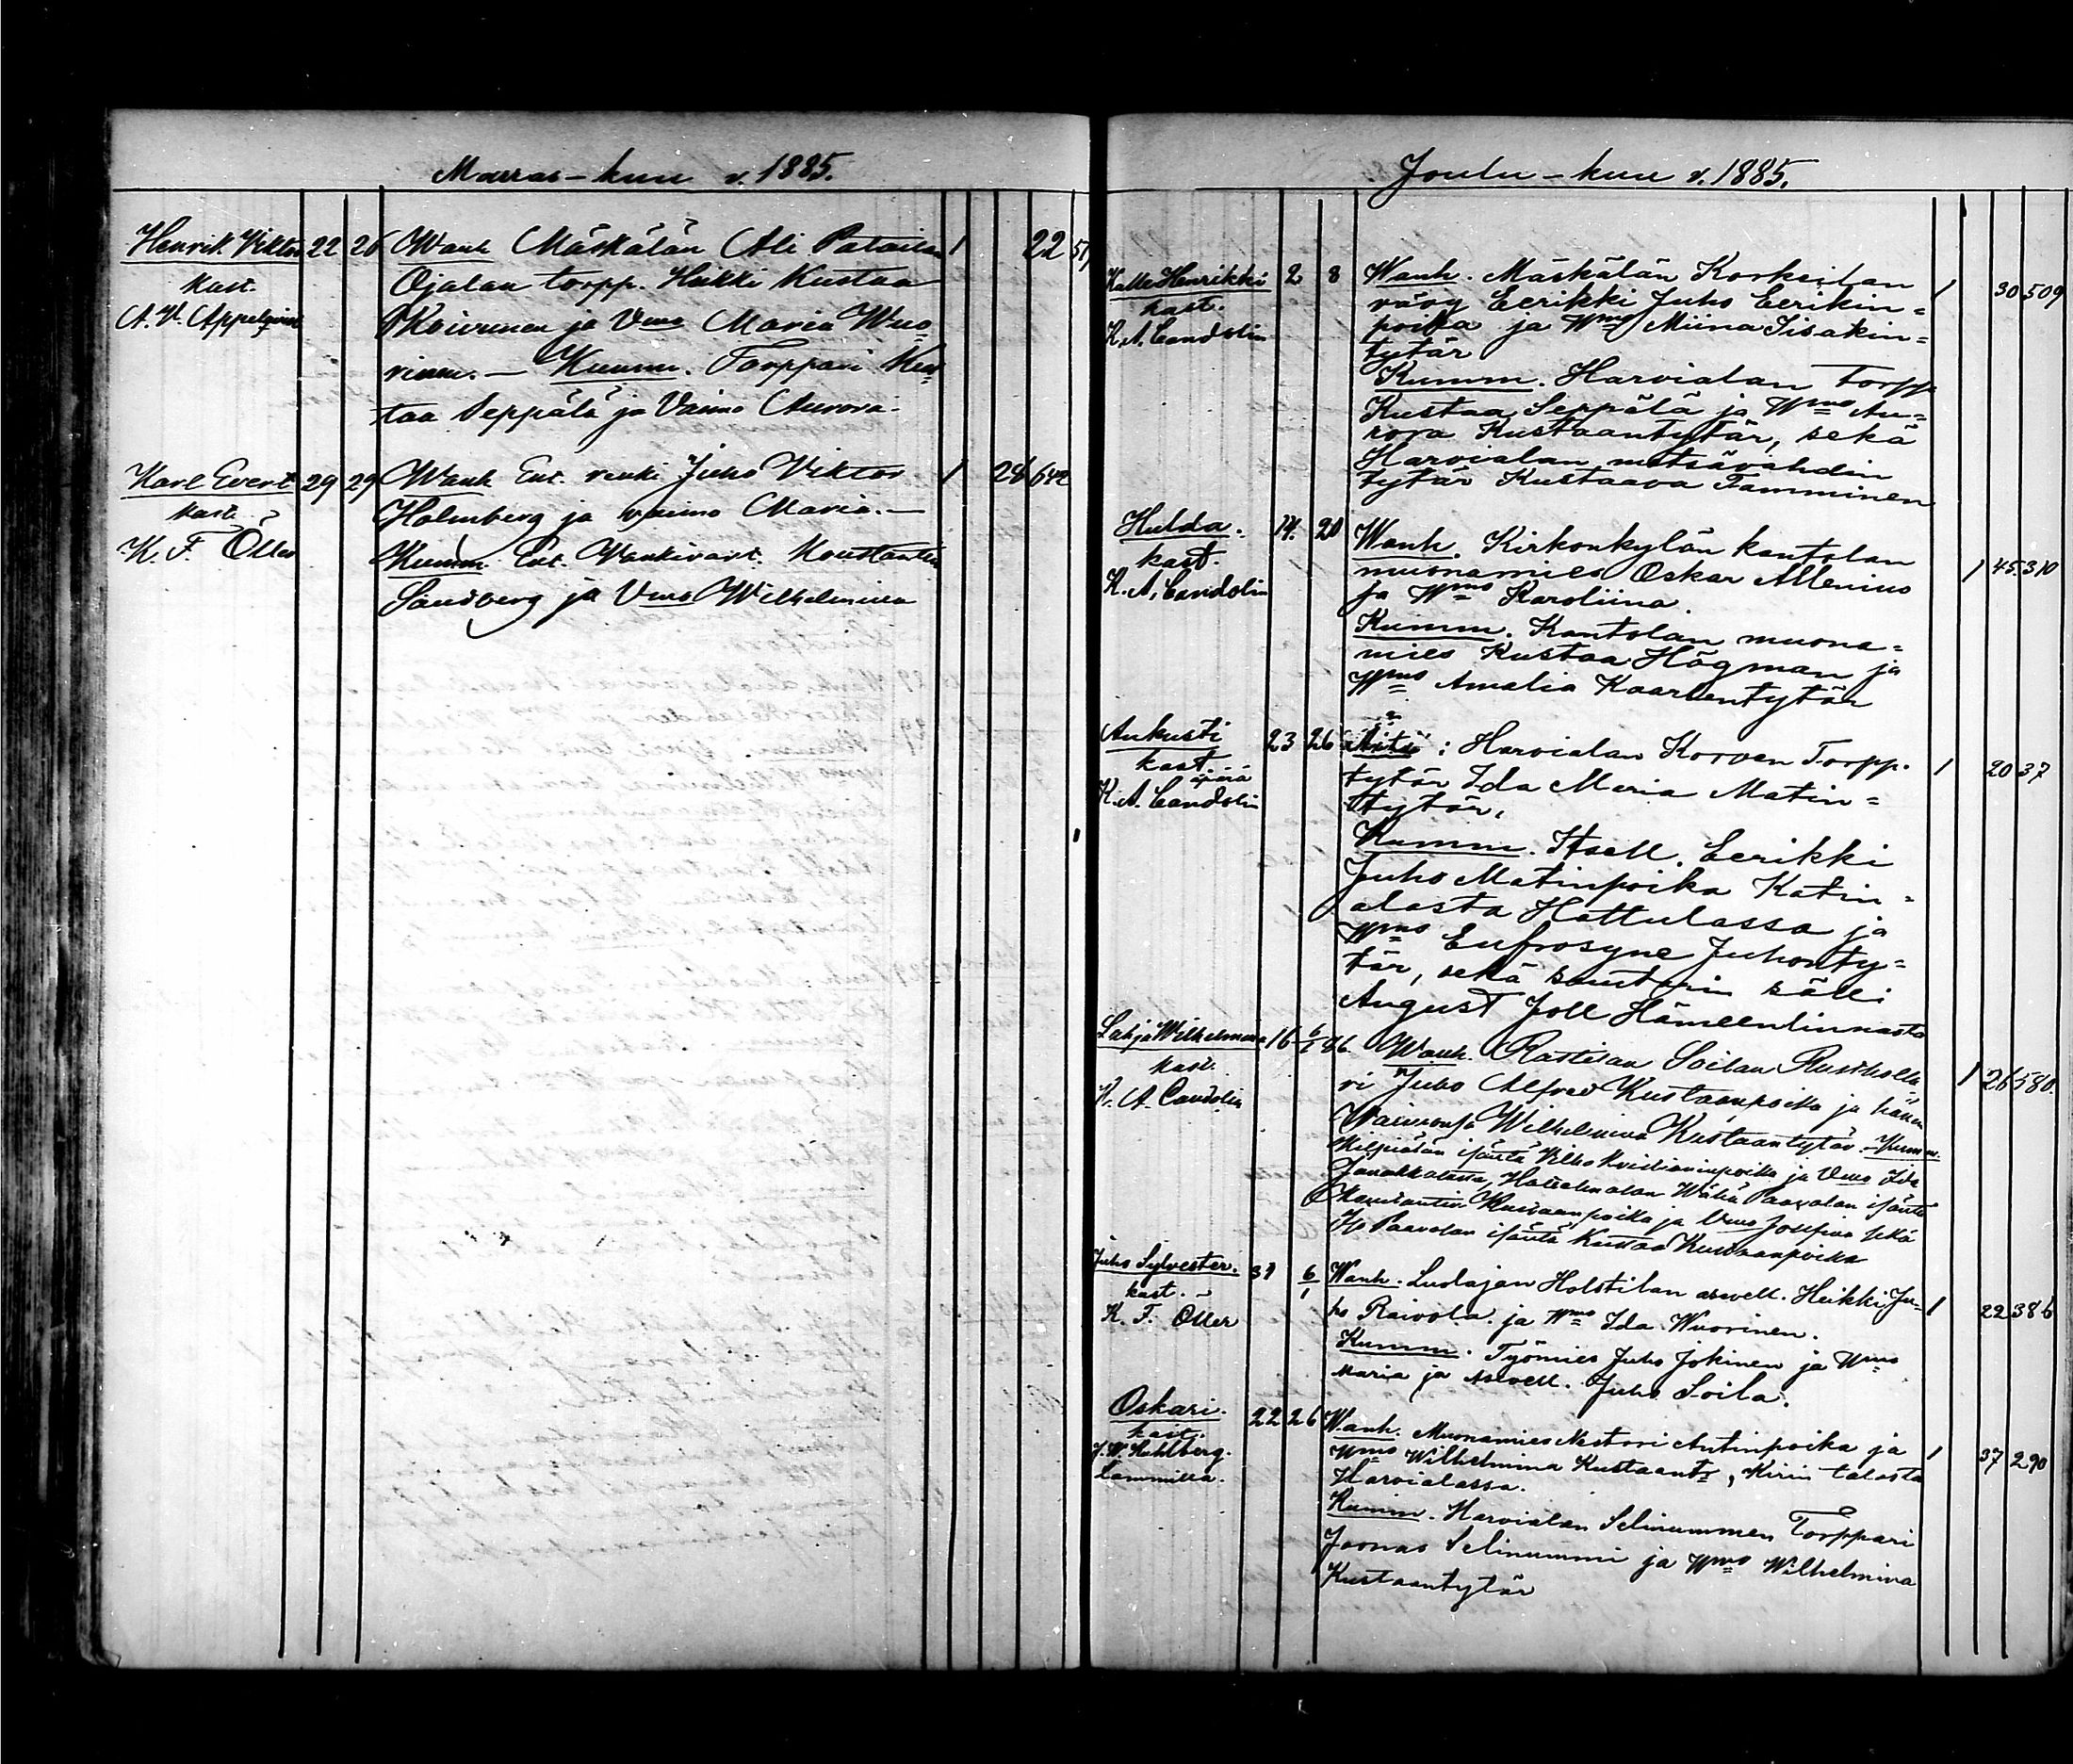 Marras-kuu v. 1885.
Henrik Viktor 22 26 Wanh Mäskälän Ali 1 22
kast. Ojalan torpp. Heikki Kustaa
A. V. Appelqvist Koivunen ja Vmo Maria Wuo
rinen. — Kumm. Torppari Kus
taa Seppälä ja Vaimo Aurora.
Karl Evert 29 29 Wanh Ent. renki Juho Viktor 1 26 642
kast. Holmberg ja vaimo Maria. —
K. F. Öller Kumm Ent. Vankivart. Konstantin
Sandberg ja Vmo Wilhelmiina
Joulu-kuu v. 1885.
Kalle Henrikki 2 8 Wanh. Mäskälän Korkeilan 1 30 509
kast. Eerikki Juho Eerikin=
K. A. Candolin poika ja Wmo Miina Iisakin=
tytär
Kumm. Harvialan Torpp.
Kustaa Seppälä ja Wmo Au=
rora Kustaantytär, sekä
Harvialan metsävahdin
tytär Kustaava Tamminen
Hulda. 14. 20 Wanh. Kirkonkylän kantolan 1 45 310
kast. muonamies Oskar Allenius
K. A. Candolin ja Wmo Karoliina.
Kumm. Kantolan muona=
mies Kustaa Högman ja
Wmo Amalia Kaarlentytär
Aukusti 23 26 Äitï: Harvialan Korven Torpp. 1 20 37
kast. äpärä tytär Ida Maria Matin=
K. A. Candolin tytär.
Kumm. Itsell. Eerikki
Juho Matinpoika Katin=
alasta Hattulassa ja
Wmo Eufrosyne Juhonty=
tär, sekä suutarin sälli
August Joll Hämeenlinnasta
Lahja Wilhelmina 16 6/1 86. Wanh. Rastilan Soilan Rustholla 1 26 580.
kast. ri Juho Alfred Kustaanpoika ja hänen
K. A. Candolin Vaimonsa Wilhelmina Kustaantytär. Kumm.
isäntä Vilho Kristianinpoika ja Vmo Ida
Janakkalassa, Wähä Paavolan isäntä
Konstantin Kustaanpoika ja Vmo Josefina sekä
Iso Paavolan isäntä Kustaa Kustaanpoika
Juho Sylvester. 31 6/1 Wanh. Luolajan Holstilan aswell. Heikki Ju- 1 22 386
kast. ho Raivola. ja Wmo Ida Wuorinen.
K. F. Öller Kumm. Työmies Juho Jokinen ja Wmo
Maria ja Aswell. Juho Soila.
Oskari. 22 26 Wanh. Muonamies Nestori Antinpoika ja 1 37 290
kast. Wmo Wilhelmina Kustaant., Kirin talosta
J. W. Kahlberg. Harvialassa.
Lammilla. Kumm. Harvialan Selinummen Torppari
Joonas Selinummi ja Wmo Wilhelmina
Kustaantytär